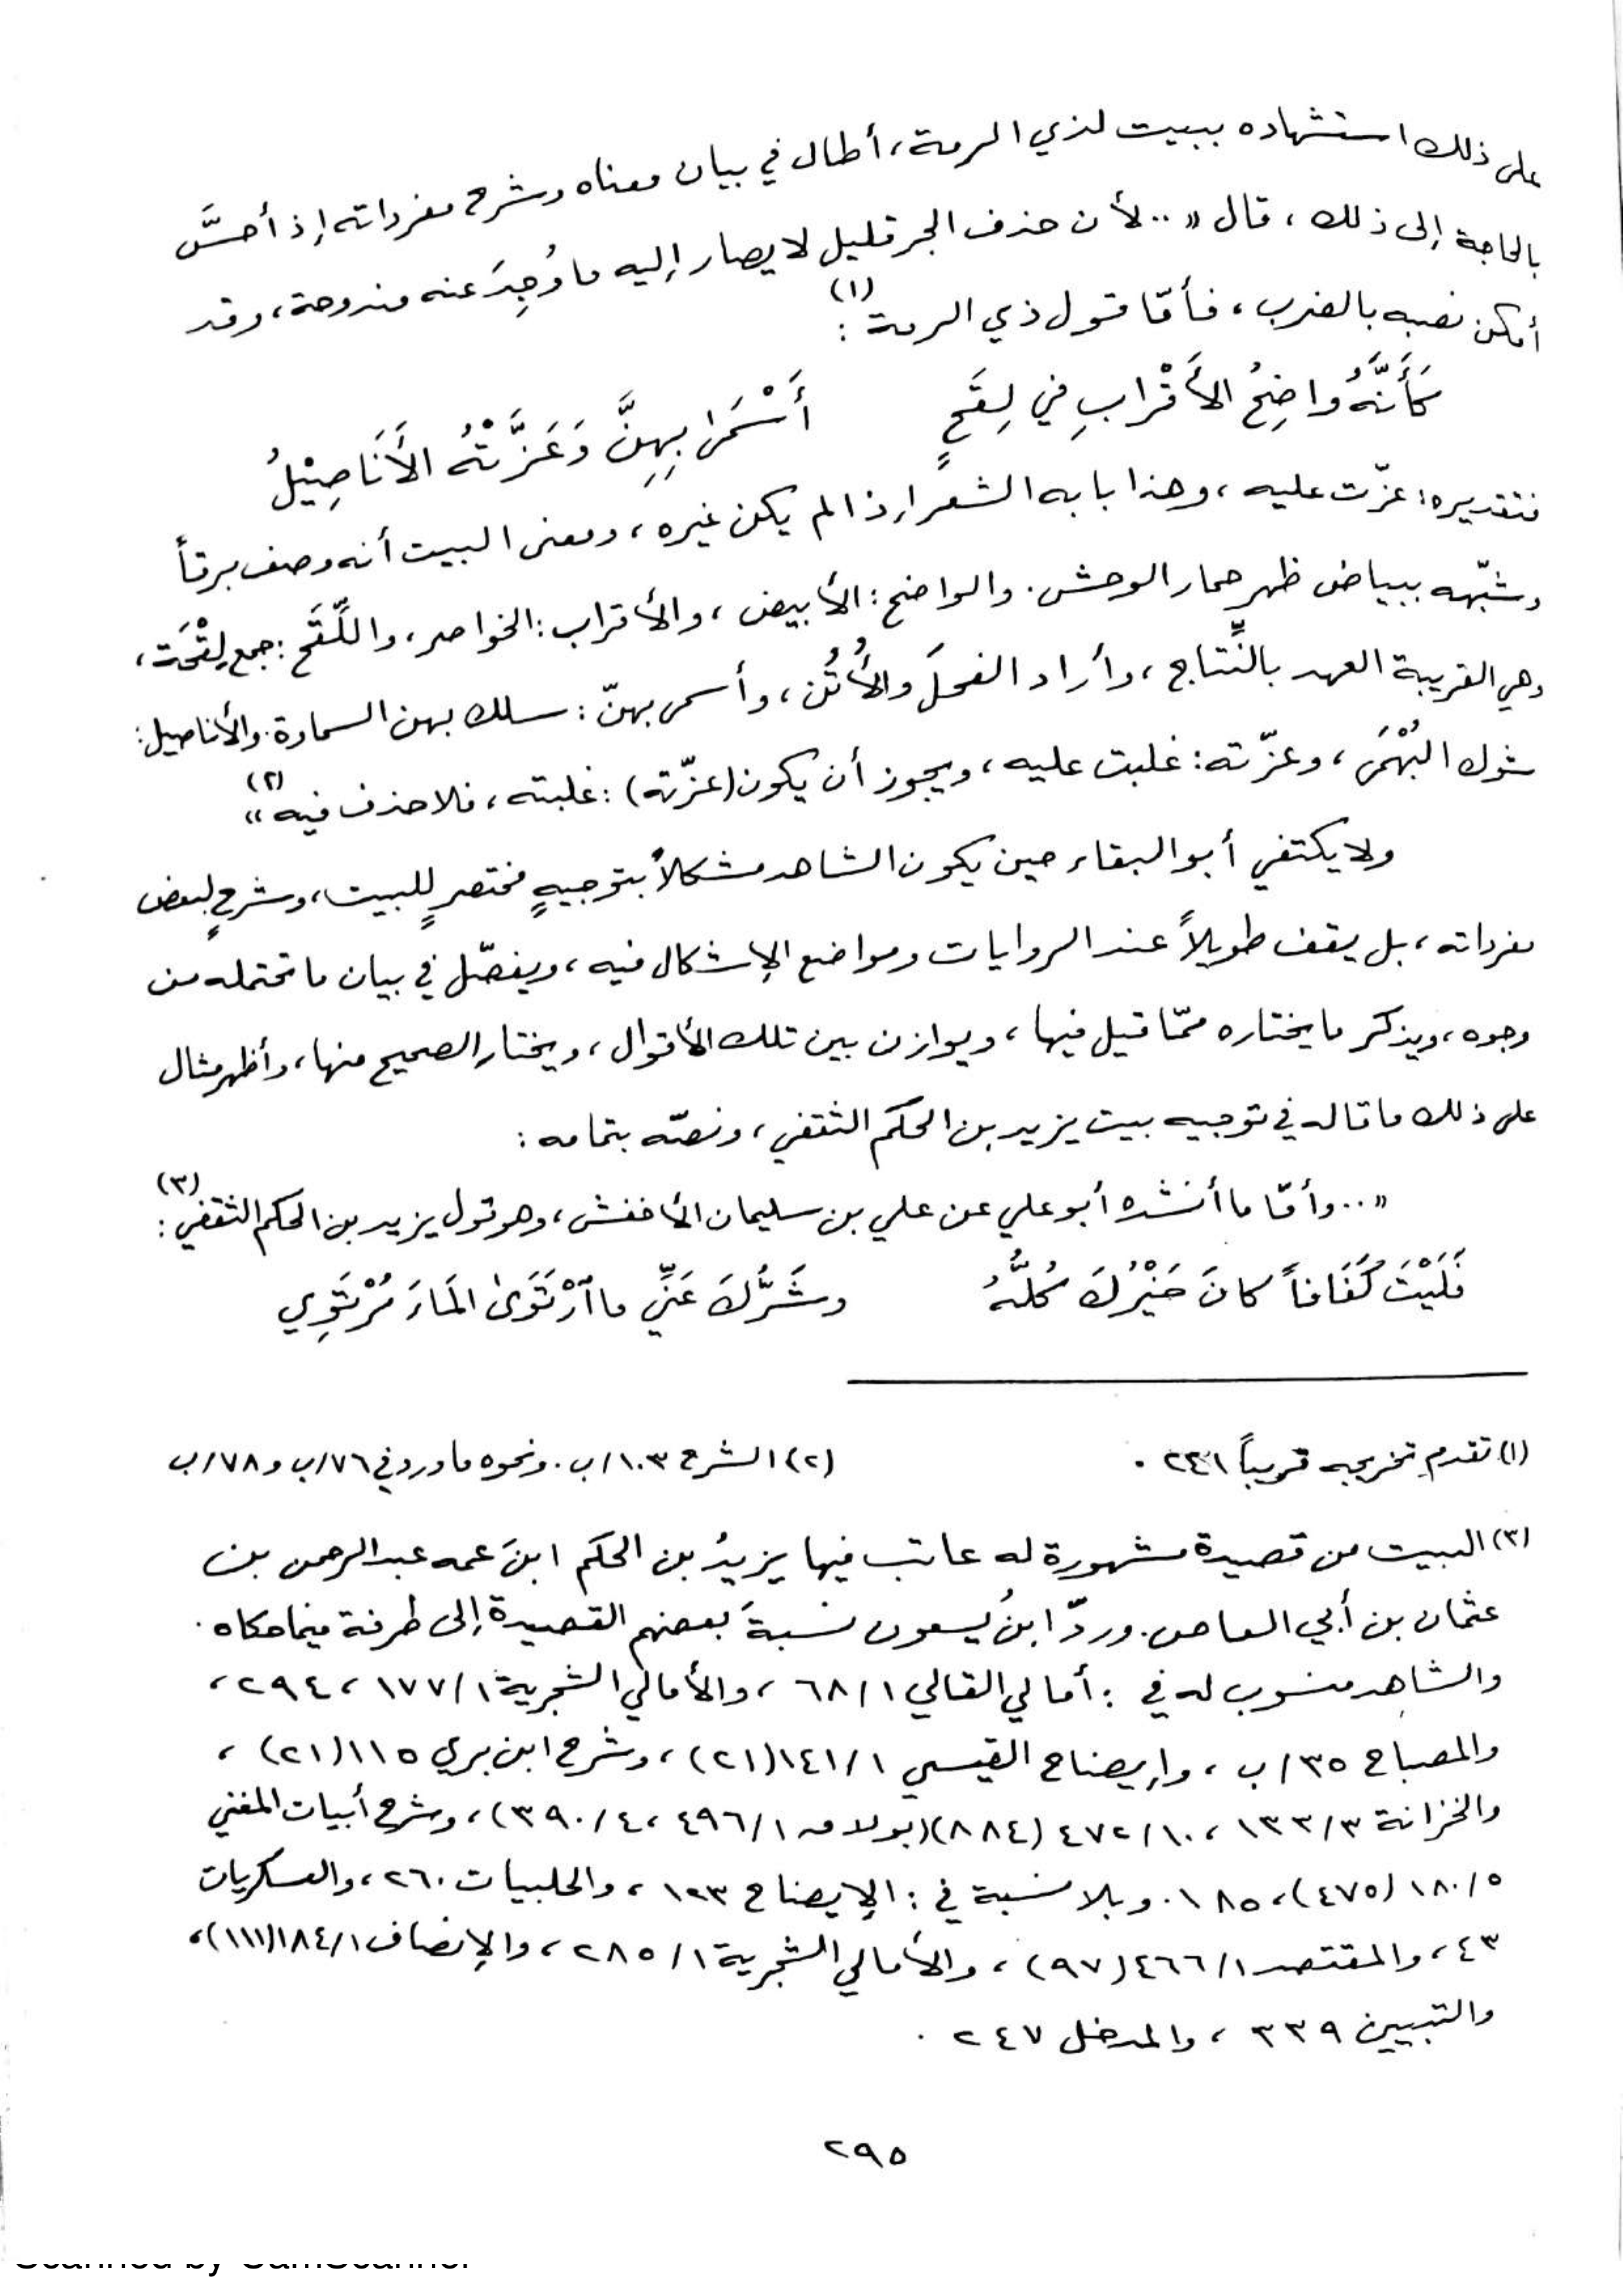 على ذلك استشهاده ببيت لذي الرمة، أطال في بيان معناه وشرح مفرداته إذ أحسَّ
بالحاجة إلى ذلك، قال «.. لأن حذف الجر قليل لا يصار إليه ما وُجِدَ عنه مندوحة، وقد
أمكن نصبه بالضرب، فأمّا قول ذي الرمة(١):
كَأَنَّهُ واضِحُ الأَقْرابِ في لِقَحٍ أَسْمَىٰ بِهِنَّ وَعَزَّتْهُ الأَنَاصِيْلُ
فتقديره: عزّت عليه، وهذا بابه الشعر إذا لم يكن غيره، ومعنى البيت أنه وصف برقاً
وشبّهه ببياض ظهر حمار الوحش. والواضح: الأبيض، والأقراب: الخواصر، واللِّقَح: جمع لِقْحَة،
وهي القريبة العهد بالنِّتاج، وأراد الفحلَ والأُتُن، وأسمى بهنّ: سلك بهن السماوة. والأناصيل:
شوك البُهْمَى، وعزّته: غلبت عليه، ويجوز أن يكون (عزّته): غلبته، فلا حذف فيه»(٢)
ولا يكتفي أبو البقاء حين يكون الشاهد مشكلاً بتوجيهٍ مختصرٍ للبيت، وشرحٍ لبعض
مفرداته، بل يقف طويلاً عند الروايات ومواضع الإشكال فيه، ويفصّل في بيان ما تحتمله من
وجوه، ويذكر ما يختاره ممّا قيل فيها، ويوازن بين تلك الأقوال، ويختار الصحيح منها، وأظهر مثال
على ذلك ما قاله في توجيه بيت يزيد بن الحكم الثقفي، ونصّه بتمامه:
«... وأمّا ما أنشده أبو علي عن علي بن سليمان الأخفش، وهو قول يزيد بن الحكم الثقفي(٣):
فَلَيْتَ كَفَافاً كانَ خَيْرُكَ كُلُّهُ وشَرُّكَ عَنِّي ما ٱرْتَوَىٰ المَاءَ مُرْتَوِي
(١) تقدم تخريجه قريباً ٢٤١. (٢) الشرح ١٠٣/ب. ونحوه ما ورد في ٧٦/ب و٧٨/ب
(٣) البيت من قصيدة مشهورة له عاتب فيها يزيدُ بن الحكم ابنَ عمه عبد الرحمن بن
عثمان بن أبي العاص. وردّ ابنُ يسعون نسبةَ بعضهم القصيدة إلى طرفة فيما حكاه.
والشاهد منسوب له في: أمالي القالي ٦٨/١، والأمالي الشجرية ١٧٧/١، ٢٩٤،
والمصباح ٣٥/ب، وإيضاح القيسي ١٤١/١(٢١)، وشرح ابن بري ١١٥(٢١)،
والخزانة ١٣٣/٣، ٤٧٢/١٠ (٨٨٤)(بولاق ٤٩٦/١، ٣٩٠/٤)، وشرح أبيات المغني
١٨٠/٥ (٤٧٥)، ١٨٥. وبلا نسبة في: الإيضاح ١٢٣، والحلبيات ٢٦٠، والعسكريات
٤٣، والمقتصد ٤٦٦/١(٩٧)، والأمالي الشجرية ٢٨٥/١، والإنصاف ١٨٤/١(١١١)،
والتبيين ٣٣٩، والمدخل ٢٤٧.
٢٩٥
Scanned by CamScanner